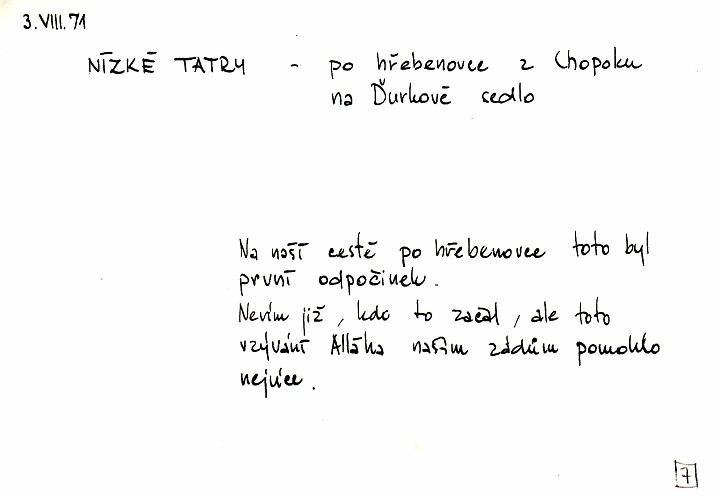 3.VIII.71
NÍZKÉ TATRY - po hřebenovce z Chopoku
na Ďurkové sedlo
Na naší cestě po hřebenovce toto byl
první odpočinek.
Nevím již, kdo to začal, ale toto
vzývání Alláha našim zádům pomohlo
nejvíce.
7